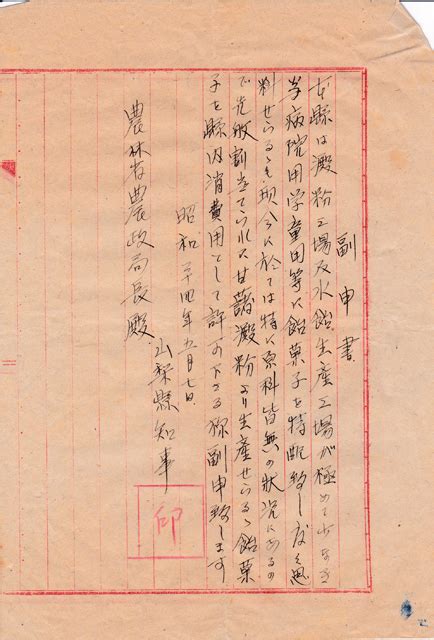 副申書
本縣は澱粉工場及水飴生産工場が極めて少なき
学病院用学童用等に飴菓子を特配致し度く思
料せらるゝも現今に於ては特に原料皆無の状況にあるの
で先般割当てられた甘藷澱粉より生産せらるゝ飴菓
子を縣内消費用として許可下さる様副申致します
昭和 年九月七日
山梨縣知事
印
農林省農政局長殿